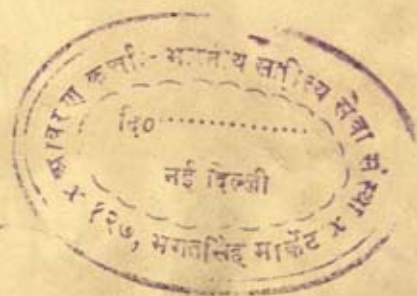 × कावरण कर्त्ता:- भारतीय साहित्य सेवा संस्था ×
दि०..................
नई दिल्ली
१२७, भगतसिंह मार्केट